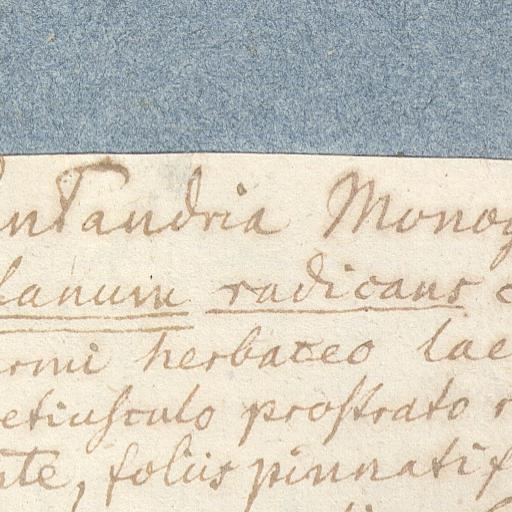 ntandria Monog
lanum radicans c
ermi herbaceo lae
etiusculo prostrato r
nte, foliis pinnatif